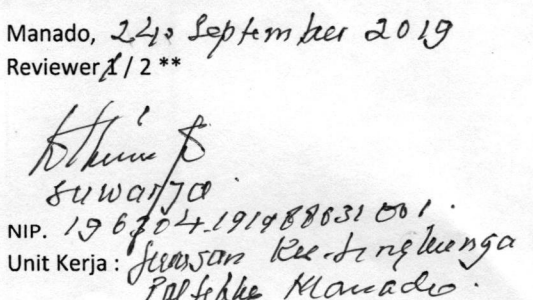 Manado, 24. September 2019
Reviewer 1 / 2 **
Suwarja
NIP. 196
Unit Kerja : Jurusan Kes. Lingkungan
Poltekkes Manado.